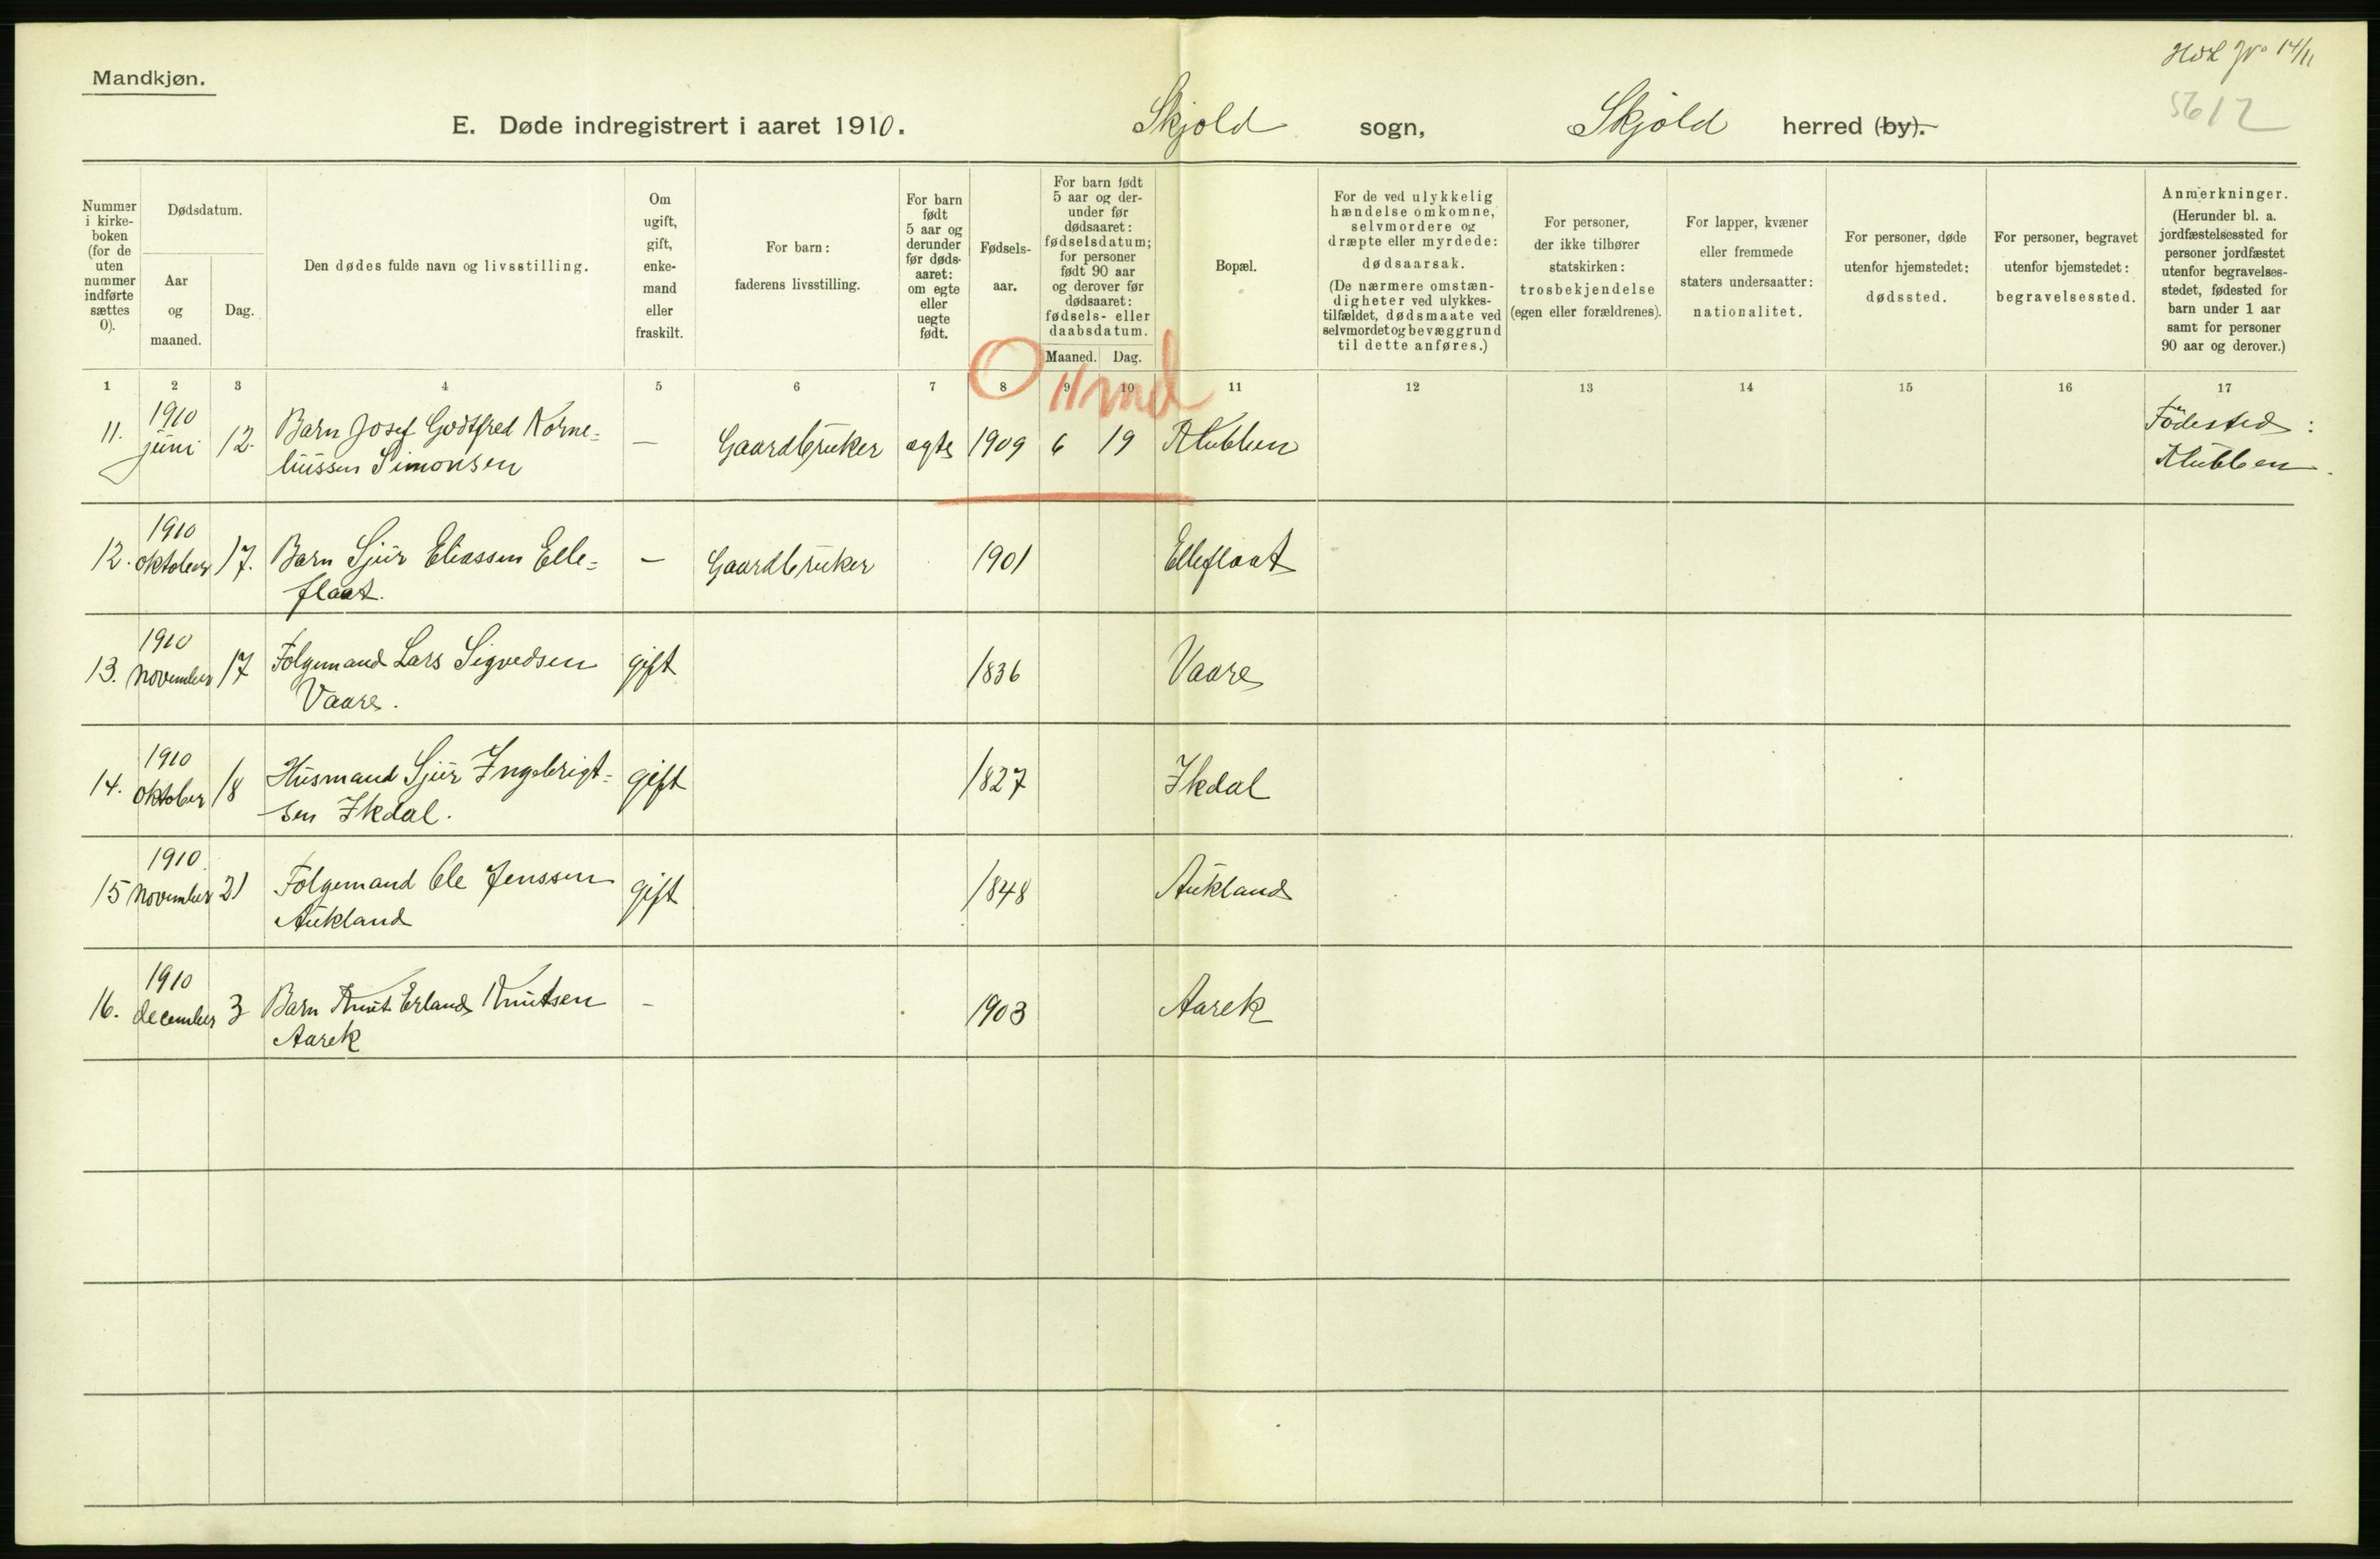 Mandkjøn.
14/11
5612
E. Døde indregistrert i aaret 1910. Skjold sogn, Skjold herred (by).
Nummer i kirke-boken (for de uten nummer indførte sættes 0).
Dødsdatum.
Aar og maaned.
Dag.
Den dødes fulde navn og livsstilling.
Om ugift, gift, enke-mand eller fraskilt.
For barn: faderens livsstilling.
For barn født 5 aar og derunder før døds-aaret: om egte eller uegte født.
Fødsels-aar.
For barn født 5 aar og der-under før dødsaaret: fødselsdatum; for personer født 90 aar og derover før dødsaaret: fødsels- eller daabsdatum.
Maaned. Dag.
Bopæl.
For de ved ulykkelig hændelse omkomne, selvmordere og dræpte eller myrdede: dødsaarsak. (De nærmere omstæn-digheter ved ulykkes-tilfældet, dødsmaate ved selvmordet og bevæggrund til dette anføres.)
For personer, der ikke tilhører statskirken: trosbekjendelse (egen eller forældrenes).
For lapper, kvæner eller fremmede staters undersaatter: nationalitet.
For personer, døde utenfor hjemstedet: dødssted.
For personer, begravet utenfor bjemstedet: begravelsessted.
Anmerkninger. (Herunder bl. a. jordfæstelsessted for personer jordfæstet utenfor begravelses-stedet, fødested for barn under 1 aar samt for personer 90 aar og derover.)
1 2 3 4 5 6 7 8 9 10 11 12 13 14 15 16 17
0 11 md
11. 1910 juni 12. Barn Josef Godtfred Korne= — Gaardbruker egte 1909 6 19 Klubben Fødested:
liussen Simonsen Klubben.
12. 1910 oktober 17. Barn Sjur Eliassen Elle= — Gaardbruker 1901 Elleflaat
flaat.
13. 1910 november 17 Følgemand Lars Sigvedsen gift 1836 Vaare
Vaare.
14. 1910 oktober 18 Husmand Sjur Ingebrigt= gift 1827 Ikdal
sen Ikdal.
15 1910 november 21 Følgemand Ole Jenssen gift 1848 Aukland
Aukland
16. 1910 december 3 Barn Knut Erland Knutsen - 1903 Aarek
Aarek